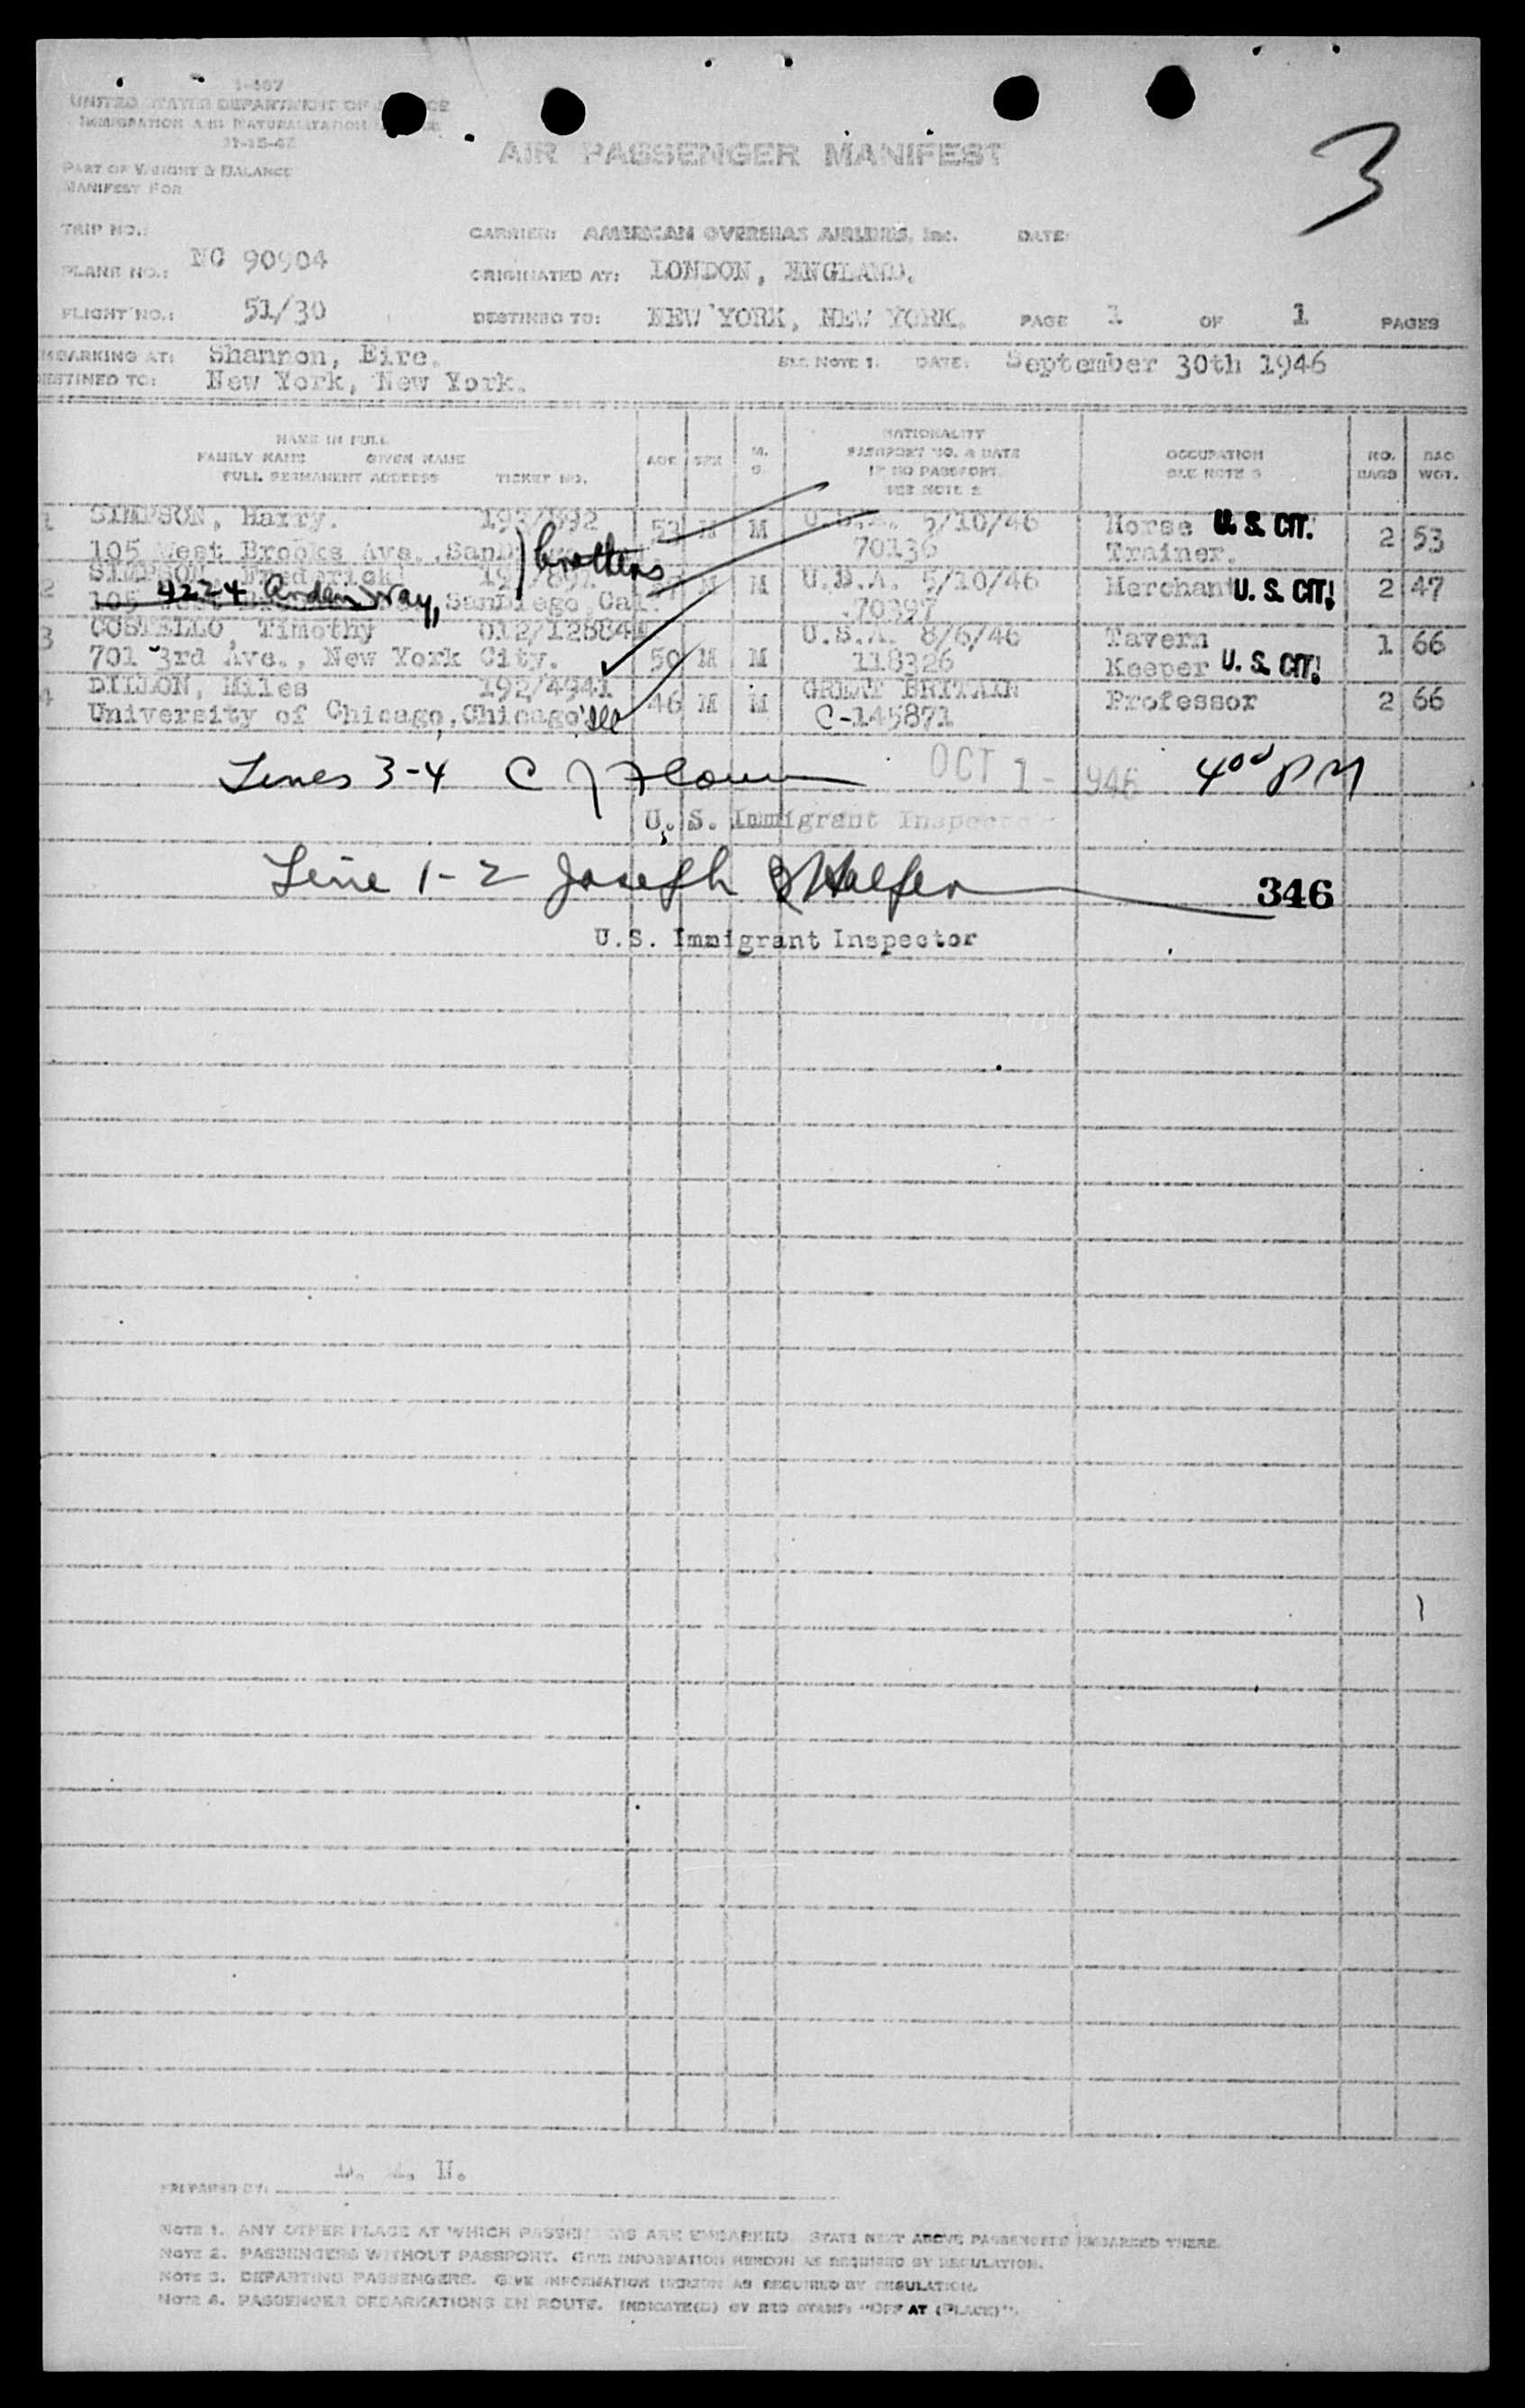 I-467
UNITED STATES DEPARTMENT OF
IMMIGRATION AND NATURALIZATION
PART OF WEIGHT & BALANCE
MANIFEST FOR
AIR PASSENGER MANIFEST
3
TRIP NO.:
CARRIER: AMERICAN OVERSEAS AIRLINES, INC. DATE:
PLANE NO.: NC 90904 ORIGINATED AT: LONDON, ENGLAND.
FLIGHT NO.: 51/30 DESTINED TO: NEW YORK, NEW YORK. PAGE 1 OF 1 PAGES
MBARKING AT: Shannon, Eire. SEE NOTE 1. DATE: September 30th 1946
DESTINED TO: New York, New York.
NAME IN FULL
FAMILY NAME GIVEN NAME
FULL PERMANENT ADDRESS TICKET NO. AGE SEX M. S. NATIONALITY PASSPORT NO. & DATE IF NO PASSPORT. SEE NOTE 2 OCCUPATION SEE NOTE 3 NO. BAGS BAG WGT.
1 SIMPSON, Harry. M M 5/10/46 Horse U. S. CIT. 2 53
105 West Brooks Ave., 70136 Trainer.
brothers
2 SIMPSON, Frederick M M U.S.A. 5/10/46 Merchant U. S. CIT. 2 47
4224 Arden Way,
105 San Diego Cal. 70397
3 COSTELLO, Timothy 012/12584 U.S.A. 8/6/46 Tavern 1 66
701 3rd Ave., New York City. 50 M M 118326 Keeper U. S. CIT.
4 DILLON, Miles 192/4941 46 M M GREAT BRITAIN Professor 2 66
University of Chicago, Chicago Ill C-145871
Lines 3-4 C J OCT 1 - 1946 4 00 PM
U. S. Immigrant Inspector
Line 1-2 Joseph
346
U.S. Immigrant Inspector
PREPARED BY:
NOTE 1. ANY OTHER PLACE AT WHICH PASSENGERS ARE EMBARKED. STATE NEXT ABOVE PASSENGERS EMBARKED THERE.
NOTE 2. PASSENGERS WITHOUT PASSPORT. GIVE INFORMATION HEREON AS REQUIRED BY REGULATION.
NOTE 3. DEPARTING PASSENGERS. GIVE INFORMATION HEREON AS REQUIRED BY REGULATION.
NOTE 4. PASSENGER DEBARKATIONS EN ROUTE. INDICATE(D) BY RED STAMP: "OFF AT (PLACE)".